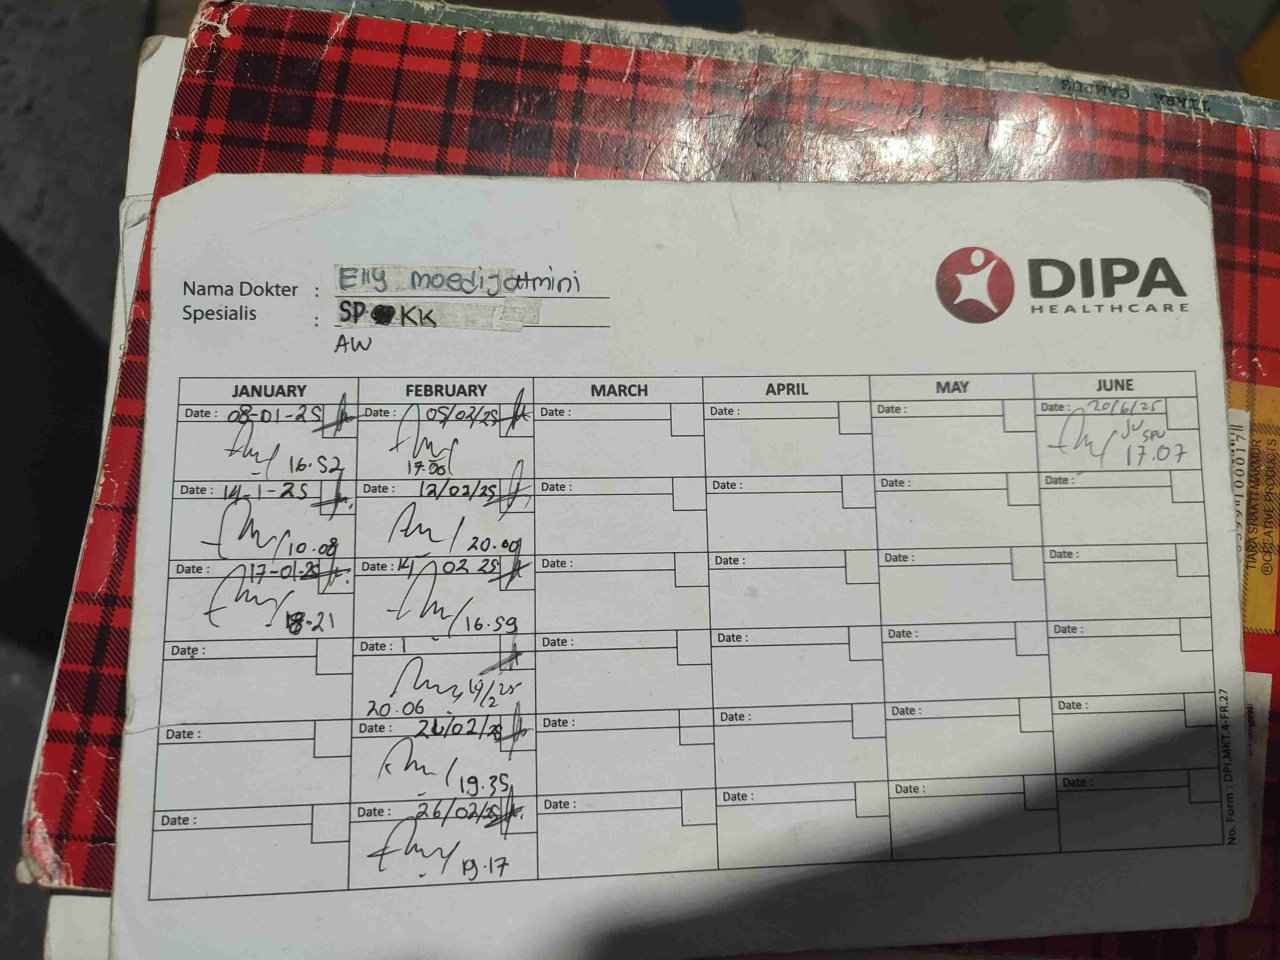 Nama Dokter : Elly moedijatmini
Spesialis : SP KK
AW
DIPA
HEALTHCARE
JANUARY FEBRUARY MARCH APRIL MAY JUNE
Date : 08-01-25 Date : 05/02/25 Date : Date : Date : Date : 20/6/25
16.52 17.07
Date : 14-1-25 Date : 12/02/25 Date : Date : Date : Date :
10.08 20.09
Date : 17-01-25 Date : 14 02 25 Date : Date : Date : Date :
18.21 16.59
Date : Date : Date : Date : Date : Date :
20.06 19/2/25
Date : Date : 21/02/25 Date : Date : Date : Date :
19.35
Date : Date : 26/02/25 Date : Date : Date : Date :
19.17
No. Form : DPI.MKT.4-FR.27
TIARA SRAKTI MAKMUR
®CREATIVE PRODUCTS